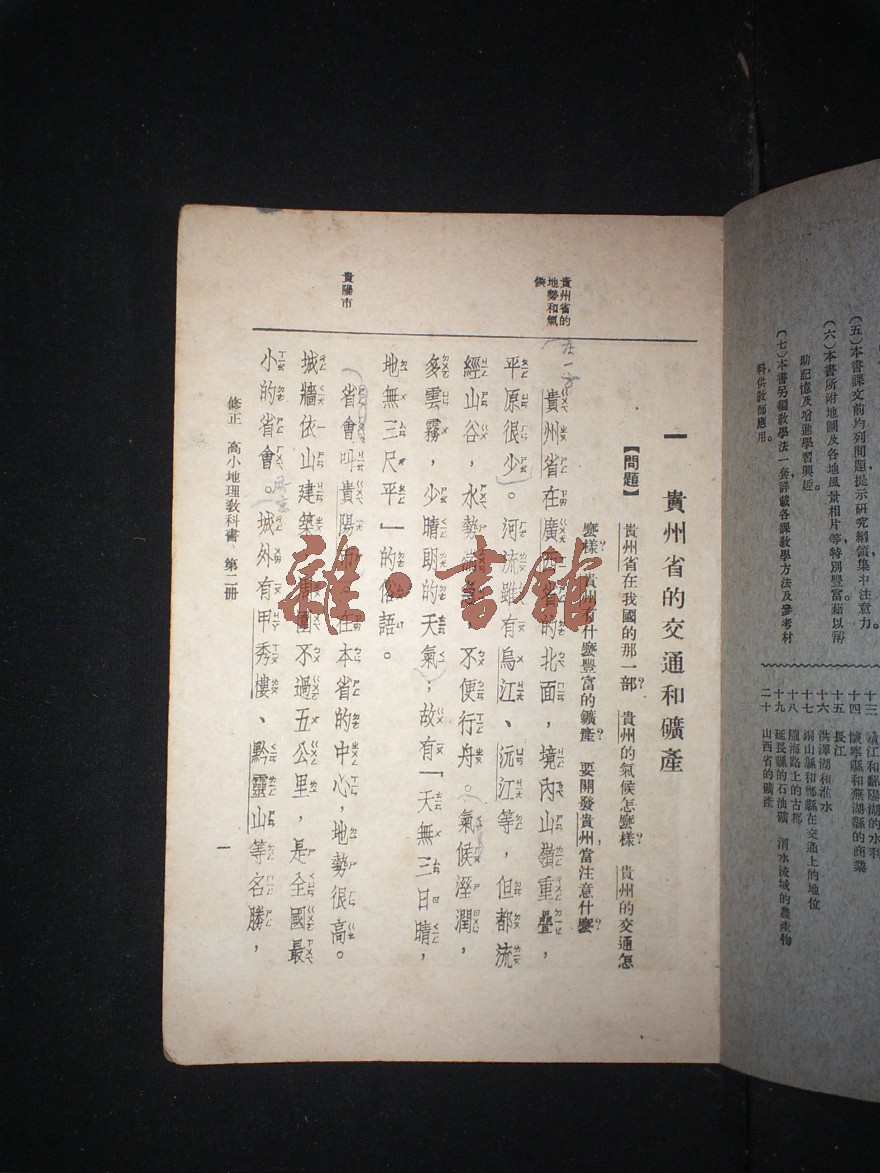 (五)本書課文前均列問題提示研究綱領集中注意力。
(六)本書所附地圖及各地風景相片等特別豐富藉以幫
助記憶及增進學習興趣
(七)本書另編教學法一套詳載各課教學方法及參考材
料供教師應用
十三 贛江和鄱陽湖的水利
十四 懷寧縣和蕪湖縣的商業
十五 長江
十六 洪澤湖和淮水
十七 銅山縣和鄲縣在交通上的地位
十八 隴海路上的古都
十九 延長縣的石油礦 渭水流域的農產物
二十 山西省的礦產
一 貴州省的交通和礦產
【問題】 貴州省在我國的那一部? 貴州的氣候怎麼樣? 貴州的交通怎
麼樣? 貴州有什麼豐富的鑛產? 要開發貴州,當注意什麼?
貴州省的
地勢和氣
候
貴州省在廣西省的北面,境內山嶺重疊,
平原很少。河流雖有烏江、沅江等,但都流
經山谷,水勢湍急,不便行舟。氣候溼潤,
多雲霧,少晴朗的天氣;故有「天無三日晴,
地無三尺平」的俗語。
貴陽市
省會叫貴陽市。在本省的中心,地勢很高。
城牆依山建築,周圍不過五公里,是全國最
小的省會。城外有甲秀樓、黔靈山等名勝,
修正 高小地理教科書 第二冊
一
雜·書館